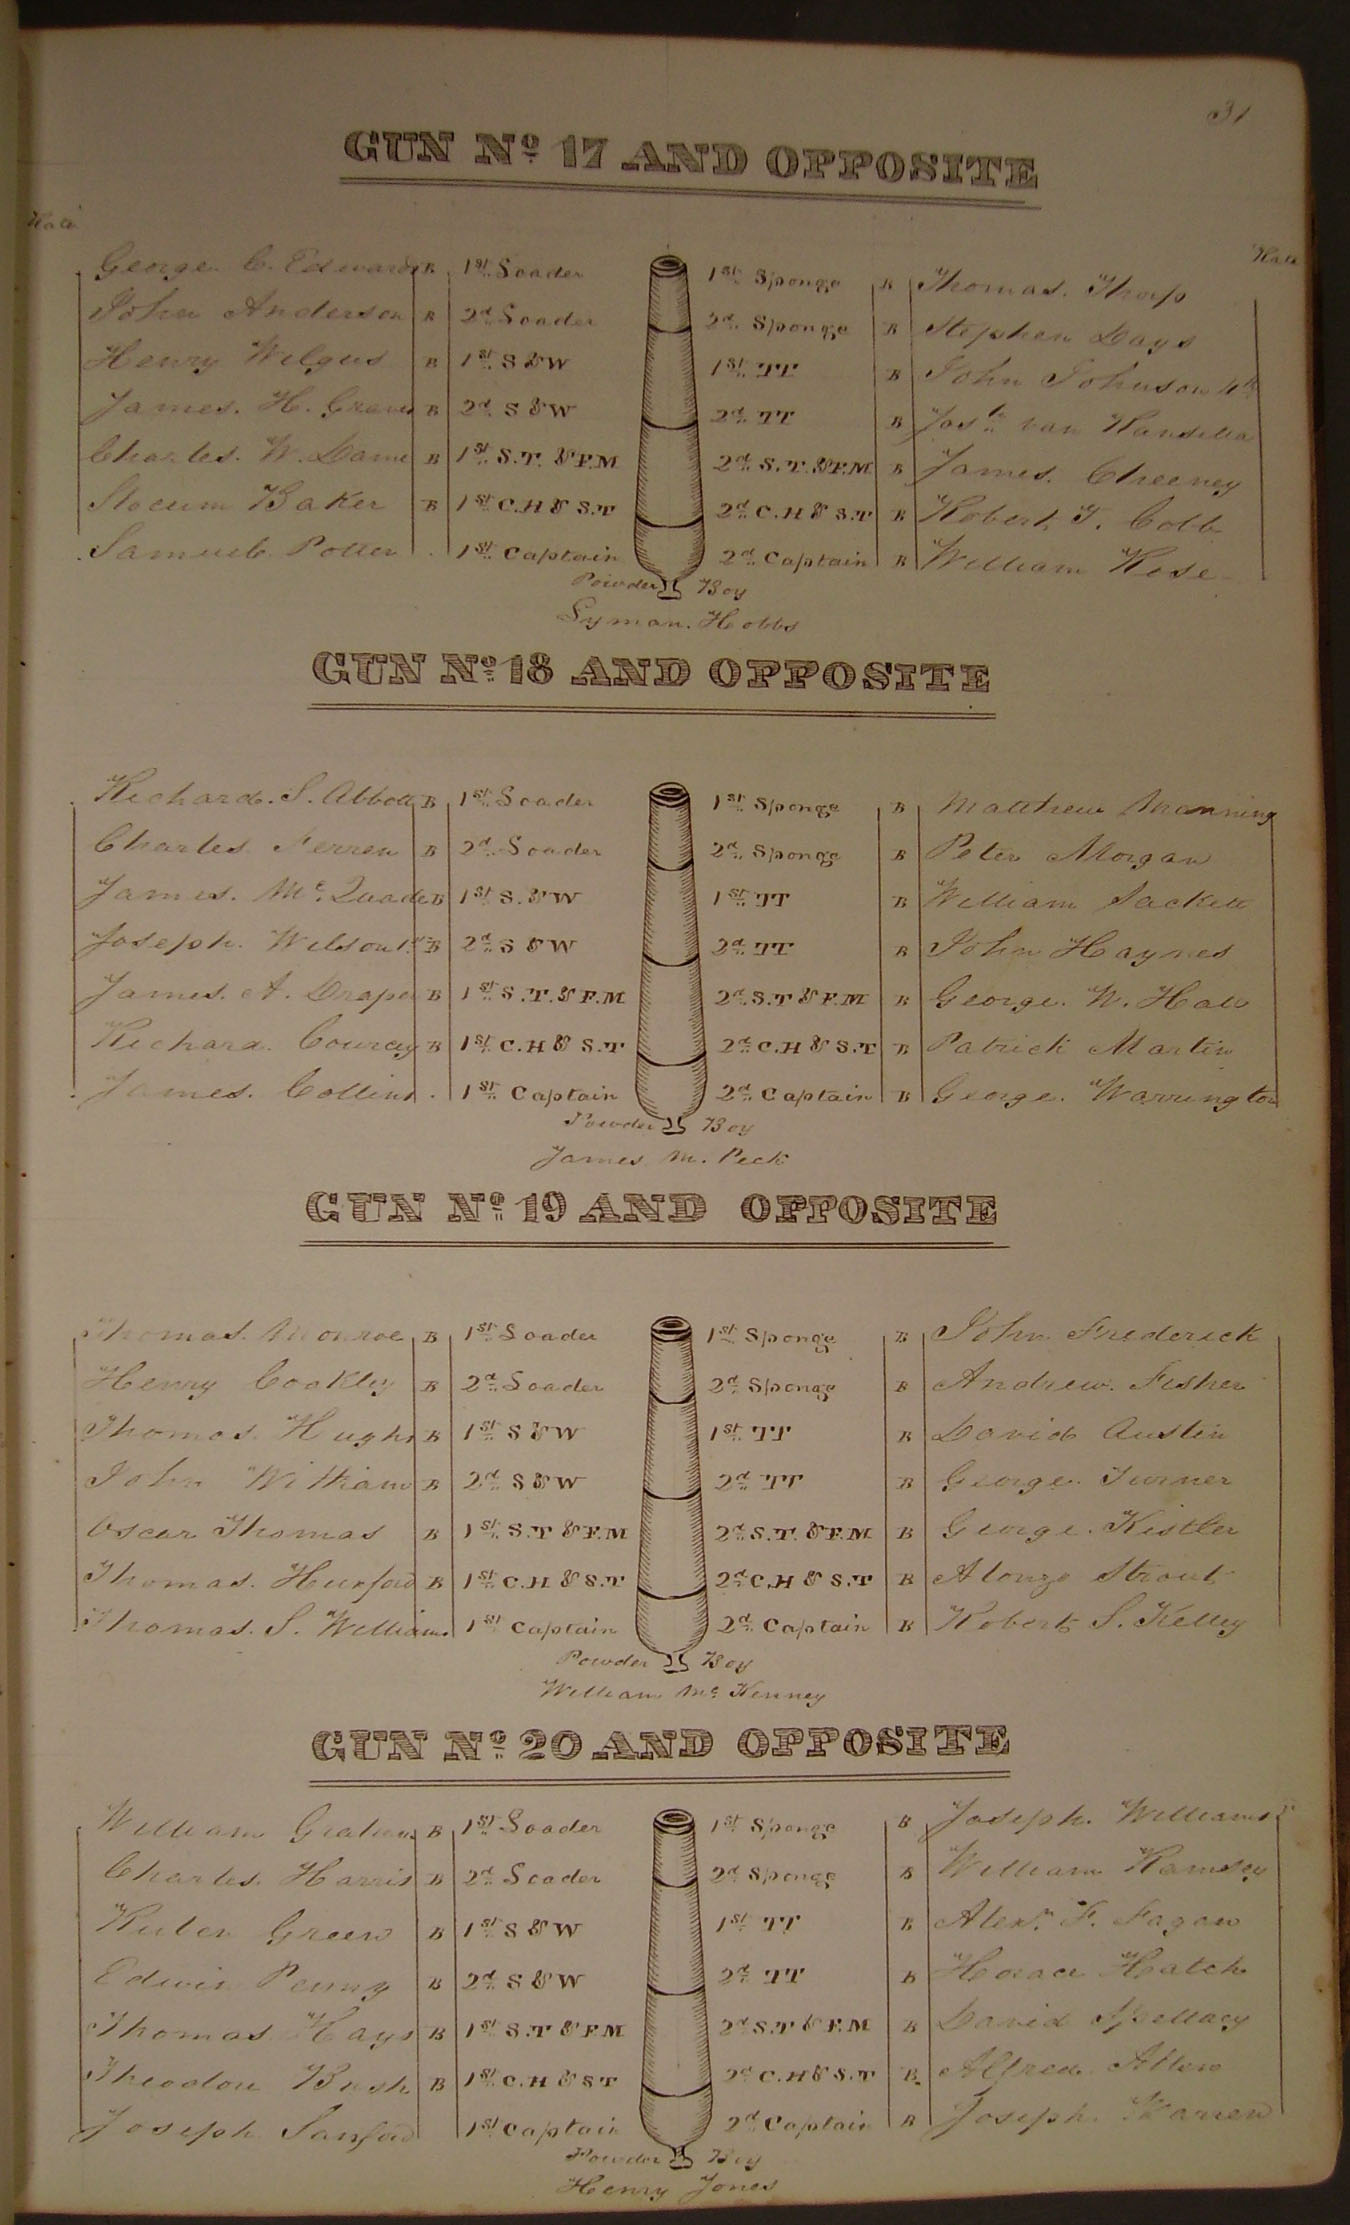 31
GUN No. 17 AND OPPOSITE
George. C. Edwards B 1st Loader 1st Sponge B Thomas. Thorp
John Anderson B 2d Loader 2d Sponge B Stephen Days
Henry Wilgus B 1st S & W 1st TT B John Johnson 4th
James. H. Graves B 2d S & W 2d TT B Josh van
Charles. W. Dame B 1st S.T. & F.M 2d S.T. & F.M B James. Cheeney
Slocum Baker B 1st C.H & S.T 2d C.H & S.T B Robert. T. Cobb
Samuel. Potter 1st Captain 2d Captain B William Rose
Powder Boy
Lyman. Hobbs
GUN No. 18 AND OPPOSITE
Richard. S. Abbott B 1st Loader 1st Sponge B Matthew Manning
Charles Ferren B 2d Loader 2d Sponge B Peter Morgan
James. Mc. Quade B 1st S. & W 1st TT B William Sackett
Joseph. Wilson 1st B 2d S & W 2d TT B John Haynes
James. A. Draper B 1st S.T. & F.M 2d S.T & F.M B George. W. Hall
Richard. Courcey B 1st C.H & S.T 2d C.H & S.T B Patrick Martin
James. Collins 1st Captain 2d Captain B George. Warrington
Powder Boy
James M. Peck
GUN No. 19 AND OPPOSITE
Thomas. Monroe B 1st Loader 1st Sponge B John Frederick
Henry Cookley B 2d Loader 2d Sponge B Andrew. Fisher
Thomas. Hughs B 1st S & W 1st TT B David Austin
John Witham B 2d S & W 2d TT B George. Turner
Oscar Thomas B 1st S.T & F.M 2d S.T. & F.M B George. Kistler
Thomas. Huxford B 1st C.H & S.T 2d C.H & S.T B Alonzo Strout
Thomas. S. Williams 1st Captain 2d Captain B Robert S. Kelley
Powder Boy
William Mc Kenney
GUN No. 20 AND OPPOSITE
William Graham B 1st Loader 1st Sponge B Joseph. Williams
Charles Harris B 2d Loader 2d Sponge B William Ramsey
Ruben Green B 1st S & W 1st TT B Alexr. F. Fagan
Edwin Penny B 2d S & W 2d TT B Horace Hatch
Thomas Hays B 1st S.T & F.M 2d S.T & F.M B David Spellacy
Theodore Bush B 1st C.H & S T 2d C.H & S.T B. Alfred Allen
Joseph Sanford 1st Captain 2d Captain B Joseph. Warren
Powder Boy
Henry Jones